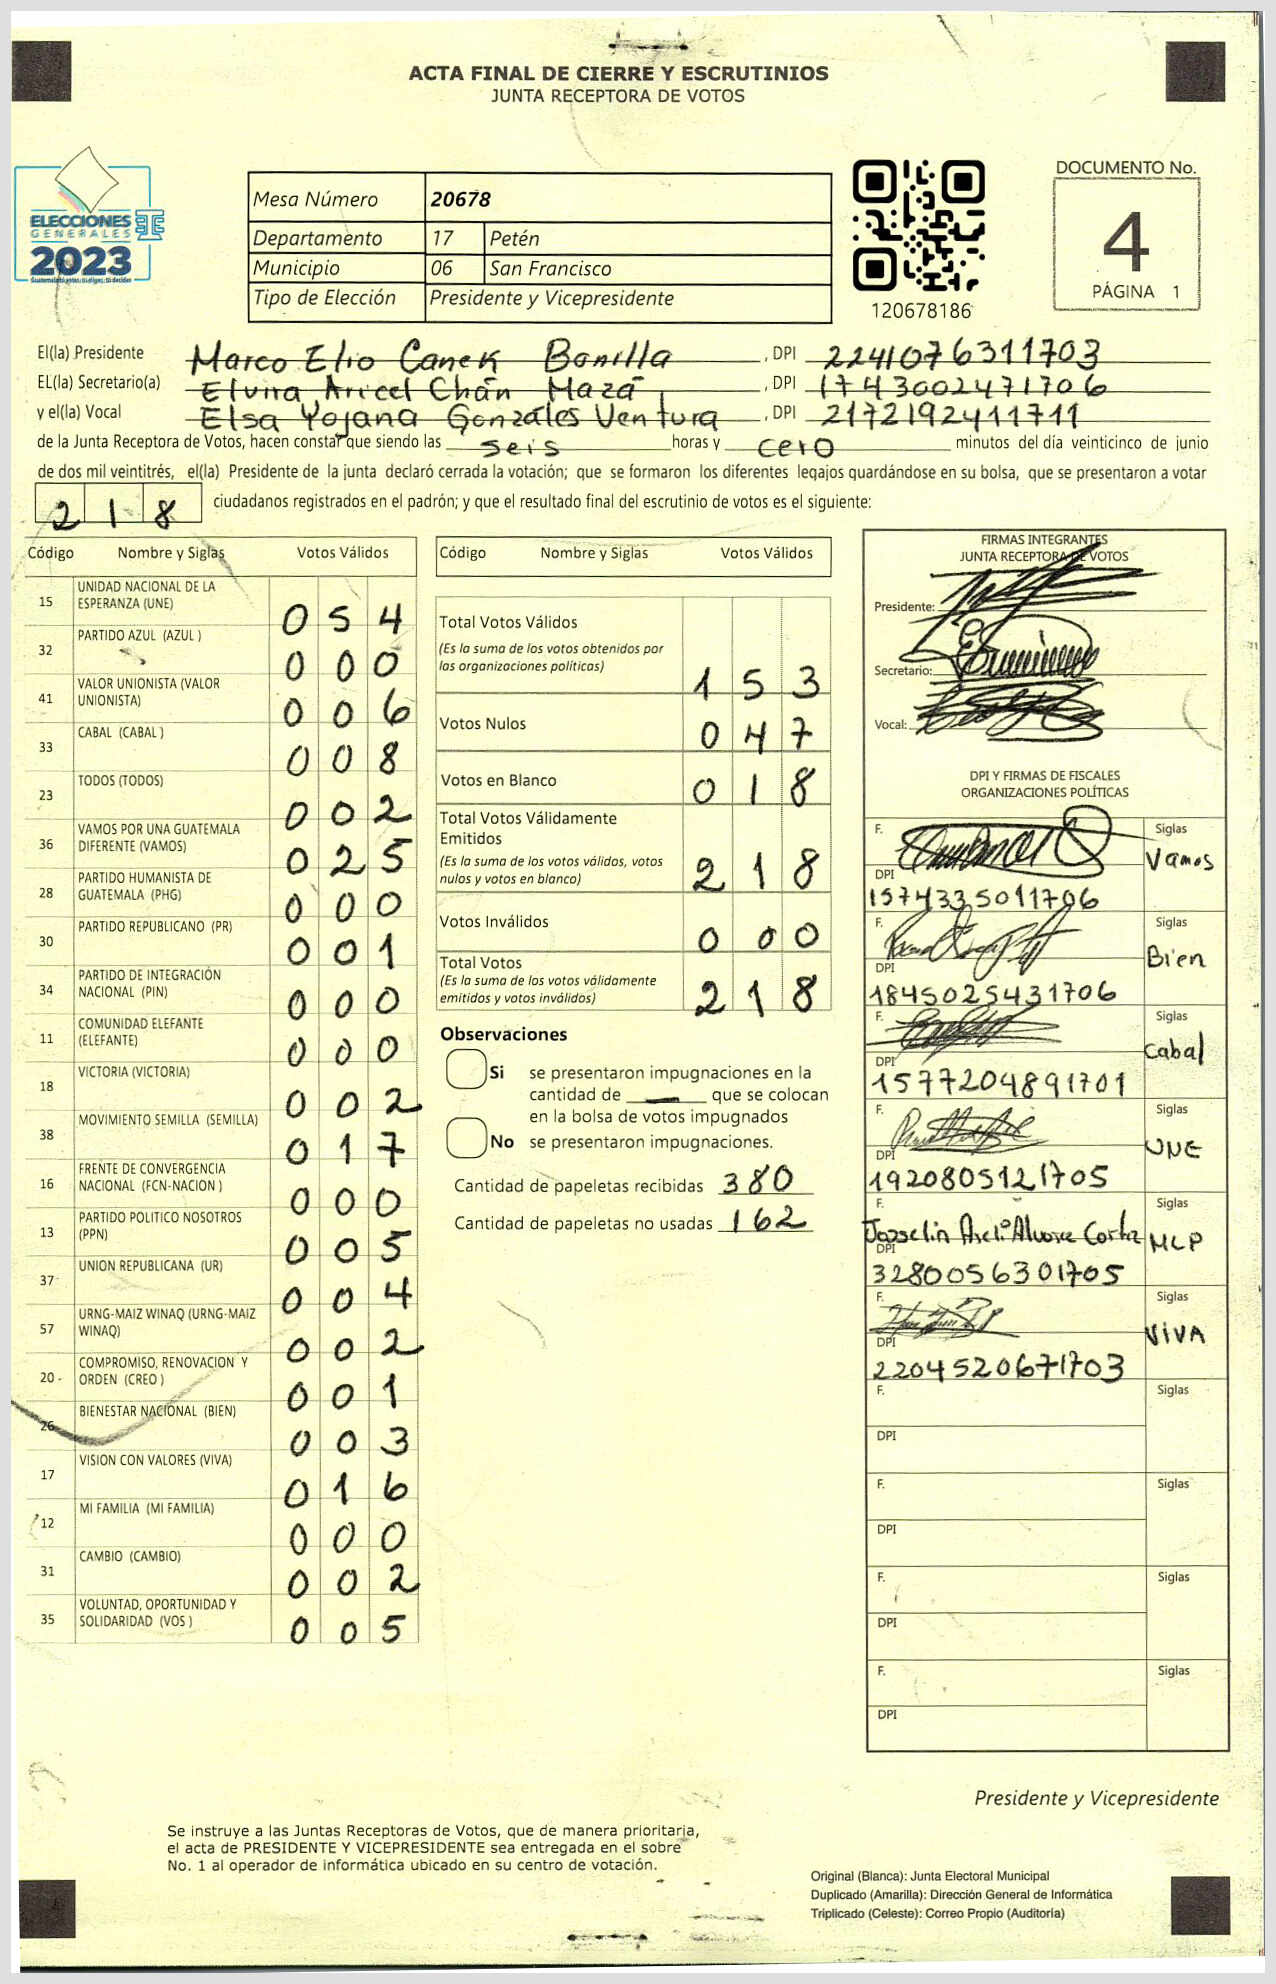 ACTA FINAL DE CIERRE Y ESCRUTINIOS
JUNTA RECEPTORA DE VOTOS
ELECCIONES
GENERALES
2023
Mesa Número 20678
Departamento 17 Petén
Municipio 06 San Francisco
Tipo de Elección Presidente y Vicepresidente
120678186
DOCUMENTO No.
4
PÁGINA 1
El(la) Presidente Marco Elio Canek Bonilla , DPI 2241076311703
EL(la) Secretario(a) Elvira Aricel Chán Mazá , DPI 1743002471706
y el(la) Vocal Elsa Yojana Gonzáles Ventura , DPI 2172192411711
de la Junta Receptora de Votos, hacen constar que siendo las seis horas y cero minutos del día veinticinco de junio
de dos mil veintitrés, el(la) Presidente de la junta declaró cerrada la votación; que se formaron los diferentes legajos guardándose en su bolsa, que se presentaron a votar
218 ciudadanos registrados en el padrón; y que el resultado final del escrutinio de votos es el siguiente:
Código Nombre y Siglas Votos Válidos
15 UNIDAD NACIONAL DE LA ESPERANZA (UNE) 054
32 PARTIDO AZUL (AZUL ) 000
41 VALOR UNIONISTA (VALOR UNIONISTA) 006
33 CABAL (CABAL ) 008
23 TODOS (TODOS) 002
36 VAMOS POR UNA GUATEMALA DIFERENTE (VAMOS) 025
28 PARTIDO HUMANISTA DE GUATEMALA (PHG) 000
30 PARTIDO REPUBLICANO (PR) 001
34 PARTIDO DE INTEGRACIÓN NACIONAL (PIN) 000
11 COMUNIDAD ELEFANTE (ELEFANTE) 000
18 VICTORIA (VICTORIA) 002
38 MOVIMIENTO SEMILLA (SEMILLA) 017
16 FRENTE DE CONVERGENCIA NACIONAL (FCN-NACION ) 000
13 PARTIDO POLITICO NOSOTROS (PPN) 005
37 UNION REPUBLICANA (UR) 004
57 URNG-MAIZ WINAQ (URNG-MAIZ WINAQ) 002
20 COMPROMISO, RENOVACION Y ORDEN (CREO ) 001
26 BIENESTAR NACIONAL (BIEN) 003
17 VISION CON VALORES (VIVA) 016
12 MI FAMILIA (MI FAMILIA) 000
31 CAMBIO (CAMBIO) 002
35 VOLUNTAD, OPORTUNIDAD Y SOLIDARIDAD (VOS ) 005
Código Nombre y Siglas Votos Válidos
Total Votos Válidos
(Es la suma de los votos obtenidos por
las organizaciones políticas) 153
Votos Nulos 047
Votos en Blanco 018
Total Votos Válidamente
Emitidos
(Es la suma de los votos válidos, votos
nulos y votos en blanco) 218
Votos Inválidos 000
Total Votos
(Es la suma de los votos válidamente
emitidos y votos inválidos) 218
Observaciones
Si se presentaron impugnaciones en la
cantidad de — que se colocan
en la bolsa de votos impugnados
No se presentaron impugnaciones.
Cantidad de papeletas recibidas 380
Cantidad de papeletas no usadas 162
FIRMAS INTEGRANTES
JUNTA RECEPTORA DE VOTOS
Presidente:
Secretario:
Vocal:
DPI Y FIRMAS DE FISCALES
ORGANIZACIONES POLÍTICAS
F. Siglas
Vamos
DPI
1574335011706
F. Siglas
Bien
DPI
1845025431706
F. Siglas
Cabal
DPI
1577204891701
F. Siglas
UNE
DPI
1920805121705
F. Siglas
MLP
DPI
3280056301705
F. Siglas
ViVA
DPI
2204520671703
F. Siglas
DPI
F. Siglas
DPI
F. Siglas
DPI
F. Siglas
DPI
Presidente y Vicepresidente
Se instruye a las Juntas Receptoras de Votos, que de manera prioritaria,
el acta de PRESIDENTE Y VICEPRESIDENTE sea entregada en el sobre
No. 1 al operador de informática ubicado en su centro de votación.
Original (Blanca): Junta Electoral Municipal
Duplicado (Amarilla): Dirección General de Informática
Triplicado (Celeste): Correo Propio (Auditoría)